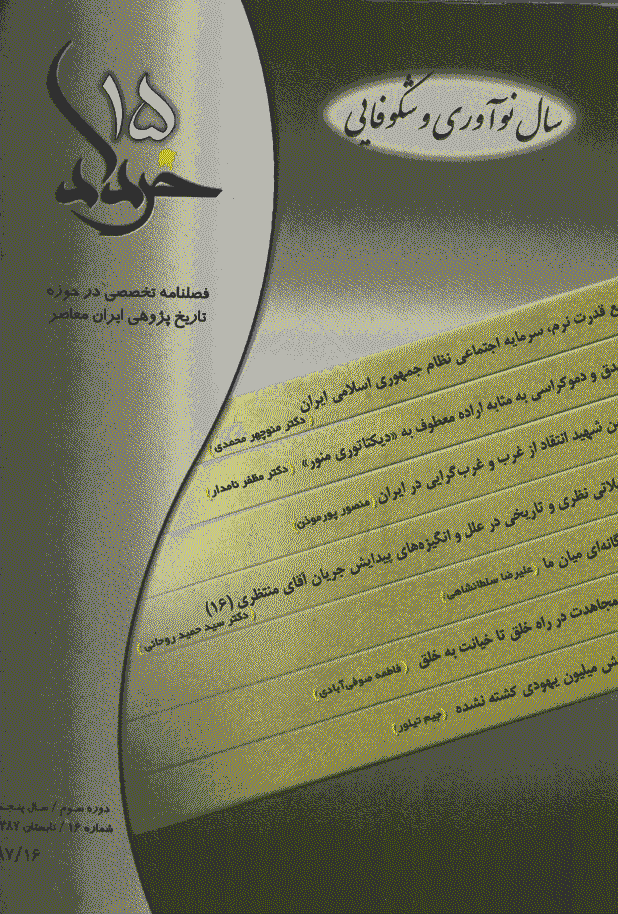 سال نوآوری و شکوفایی
۱۵
خرداد
فصلنامه تخصصی در حوزه
تاریخ پژوهی ایران معاصر
قدرت نرم، سرمایه اجتماعی نظام جمهوری اسلامی ایران
(دکتر منوچهر محمدی)
و دموکراسی به مثابه اراده معطوف به «دیکتاتوری منور» (دکتر مظفر نامدار)
شهید انتقاد از غرب و غرب‌گرایی در ایران (منصور پورموذن)
نظری و تاریخی در علل و انگیزه‌های پیدایش جریان آقای منتظری (۱۶)
(دکتر سید حمید روحانی)
میان ما (علیرضا سلطانشاهی)
مجاهدت در راه خلق تا خیانت به خلق (فاطمه صوفی‌آبادی)
میلیون یهودی کشته نشده (جیم تیلور)
دوره سوم / سال
شماره ۱۶ / تابستان